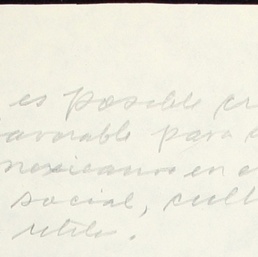 es posible cr
avorable para
mexicanos en
social, cult
utiles.